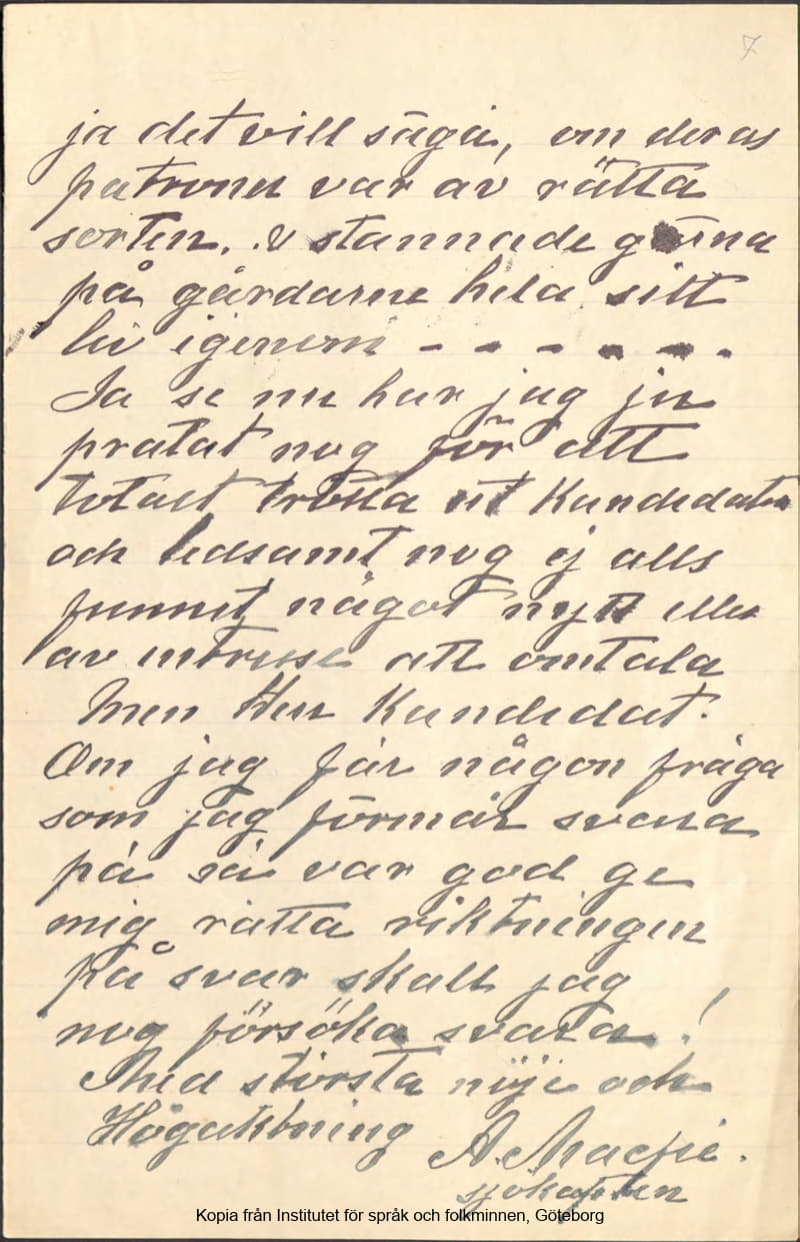 7
ja det vill säga, om deras
patroner var av rätta
sorten. & stannade gärna
på gårdarne hela sitt
liv igenom – – – – – –
Ja se nu har jag ju
pratat nog för att
totalt trötta ut Kandedaten
och ledsamt nog ej alls
funnit något nytt eller
av intresse att omtala
Men Herr Kandedat.
Om jag får någon fråga
som jag förmår svara
på så var god ge
mig rätta riktningen
på svar skall jag
nog försöka svara!
Med största nöje och
Högaktning A. Macfie.
sjökapten
Kopia från Institutet för språk och folkminnen, Göteborg